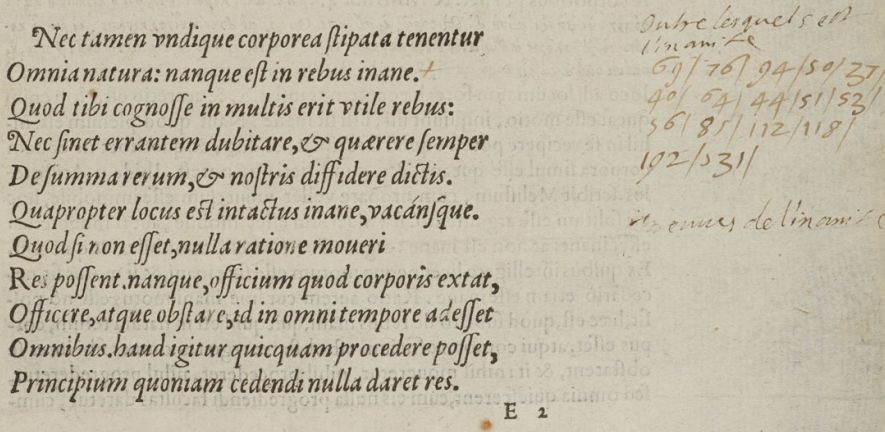 Nec tamen vndique corporea stipata tenentur
Omnia natura: nanque est in rebus inane.+
Quod tibi cognosse in multis erit vtile rebus:
Nec sinet errantem dubitare, & quærere semper
De summa rerum, & nostris diffidere dictis.
Quapropter locus est intactus inane, vacánsque.
Quod si non esset, nulla ratione moueri
Res possent. nanque, officium quod corporis extat,
Officere, atque obstare, id in omni tempore adesset
Omnibus. haud igitur quicquam procedere posset,
Principium quoniam cedendi nulla daret res.
E 2
Outre lesquels est
l'inanite
69/ 76/ 94/ 50/ 37/
40/ 64/ 44/ 51/ 53/
56/ 85/ 112/ 118/
192/ 531/
de l'inanite